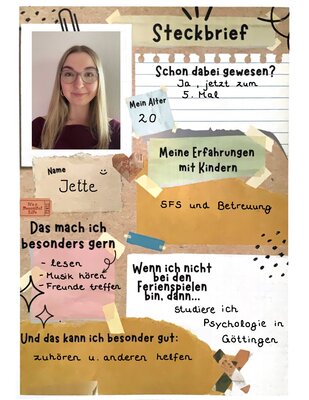 Steckbrief
Schon dabei gewesen?
Ja, jetzt zum
5. Mal
Mein Alter
20
Meine Erfahrungen
mit Kindern
SFS und Betreuung
Name
Jette
Das mach ich
besonders gern
- lesen
- Musik hören
- Freunde treffen
Wenn ich nicht
bei den
Ferienspielen
bin, dann...
studiere ich
Psychologie in
Göttingen
Und das kann ich besonder gut:
zuhören u. anderen helfen